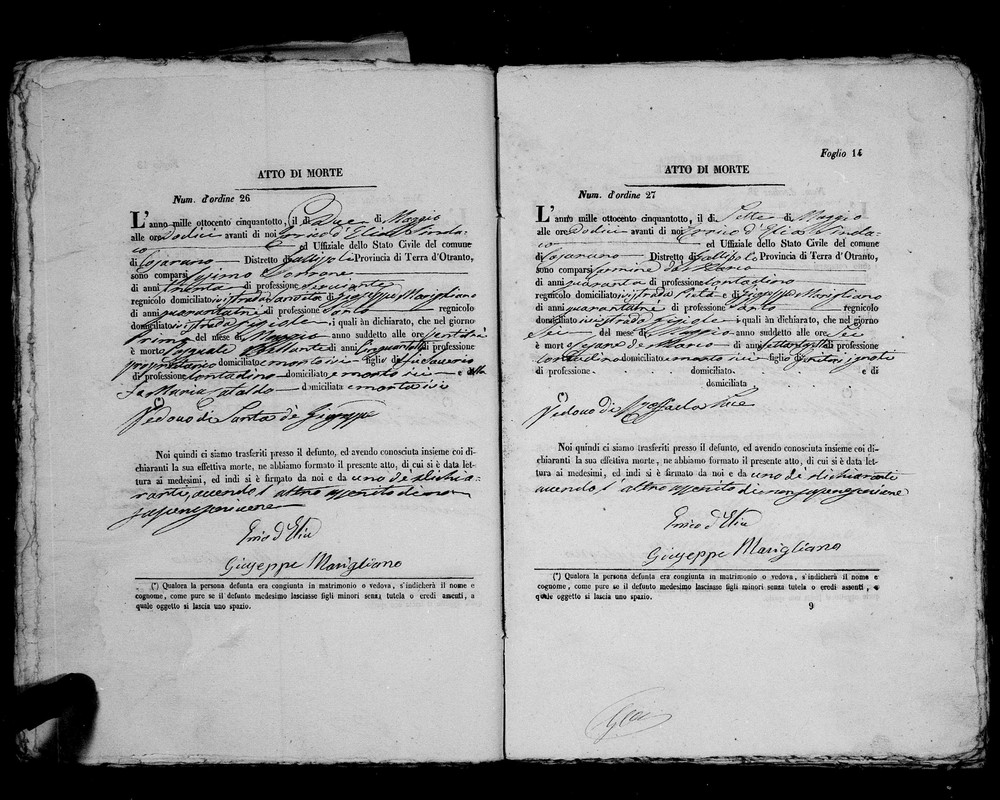 ATTO DI MORTE
Num. d'ordine 26
L'anno mille ottocento cinquantotto, il dì Due di Maggio
alle ore Dodici avanti di noi Errico d'Elia Sinda-
co ed Uffiziale dello Stato Civile del comune
di Casarano Distretto di Gallipoli Provincia di Terra d'Otranto,
sono comparsi
di anni trenta di professione
regnicolo domiciliato ivi strada e di Giuseppe Marigliano
di anni quarantatre di professione Sarto regnicolo
domiciliato ivi strada , i quali àn dichiarato, che nel giorno
Primo del mese di Maggio suddetto alle ore
è morto Pasquale di anni di professione
proprietario domiciliato e morto ivi figlio di fu Saverio
di professione Contadino domiciliato e morto ivi e della
fu Maria Cataldo domiciliata e morta ivi
(*)
Vedovo di Santa de Giuseppe
Noi quindi ci siamo trasferiti presso il defunto, ed avendo conosciuta insieme coi di-
chiaranti la sua effettiva morte, ne abbiamo formato il presente atto, di cui si è data let-
tura ai medesimi, ed indi si è firmato da noi e da uno de' dichia-
ranti, avendo l'altro asserito di non
saper scrivere
Errico d'Elia
Giuseppe Marigliano
(*) Qualora la persona defunta era congiunta in matrimonio o vedova, s'indicherà il nome e
cognome, come pure se il defunto medesimo lasciasse figli minori senza tutela o eredi assenti, a
quale oggetto si lascia uno spazio.
Foglio 14
ATTO DI MORTE
Num. d'ordine 27
L'anno mille ottocento cinquantotto, il dì Sette di Maggio
alle ore Dodici avanti di noi Errico d'Elia Sinda-
co ed Uffiziale dello Stato Civile del comune
di Casarano Distretto di Gallipoli Provincia di Terra d'Otranto,
sono comparsi de Marco
di anni quaranta di professione Contadino
regnicolo domiciliato ivi strada Pietà e di Giuseppe Marigliano
di anni quarantatre di professione Sarto regnicolo
domiciliato ivi strada , i quali àn dichiarato, che nel giorno
Sei del mese di Maggio suddetto alle ore Sei
è morto de Marco di anni di professione
Contadino domiciliato e morto ivi figlio di genitori ignoti
di professione domiciliato e di
domiciliata
(*)
Vedovo di Raffaela
Noi quindi ci siamo trasferiti presso il defunto, ed avendo conosciuta insieme coi di-
chiaranti la sua effettiva morte, ne abbiamo formato il presente atto, di cui si è data let-
tura ai medesimi, ed indi si è firmato da noi e da uno de' dichiaranti
avendo l'altro asserito di non saper scrivere
Errico d'Elia
Giuseppe Marigliano
(*) Qualora la persona defunta era congiunta in matrimonio o vedova, s'indicherà il nome e
cognome, come pure se il defunto medesimo lasciasse figli minori senza tutela o eredi assenti, a
quale oggetto si lascia uno spazio.
9